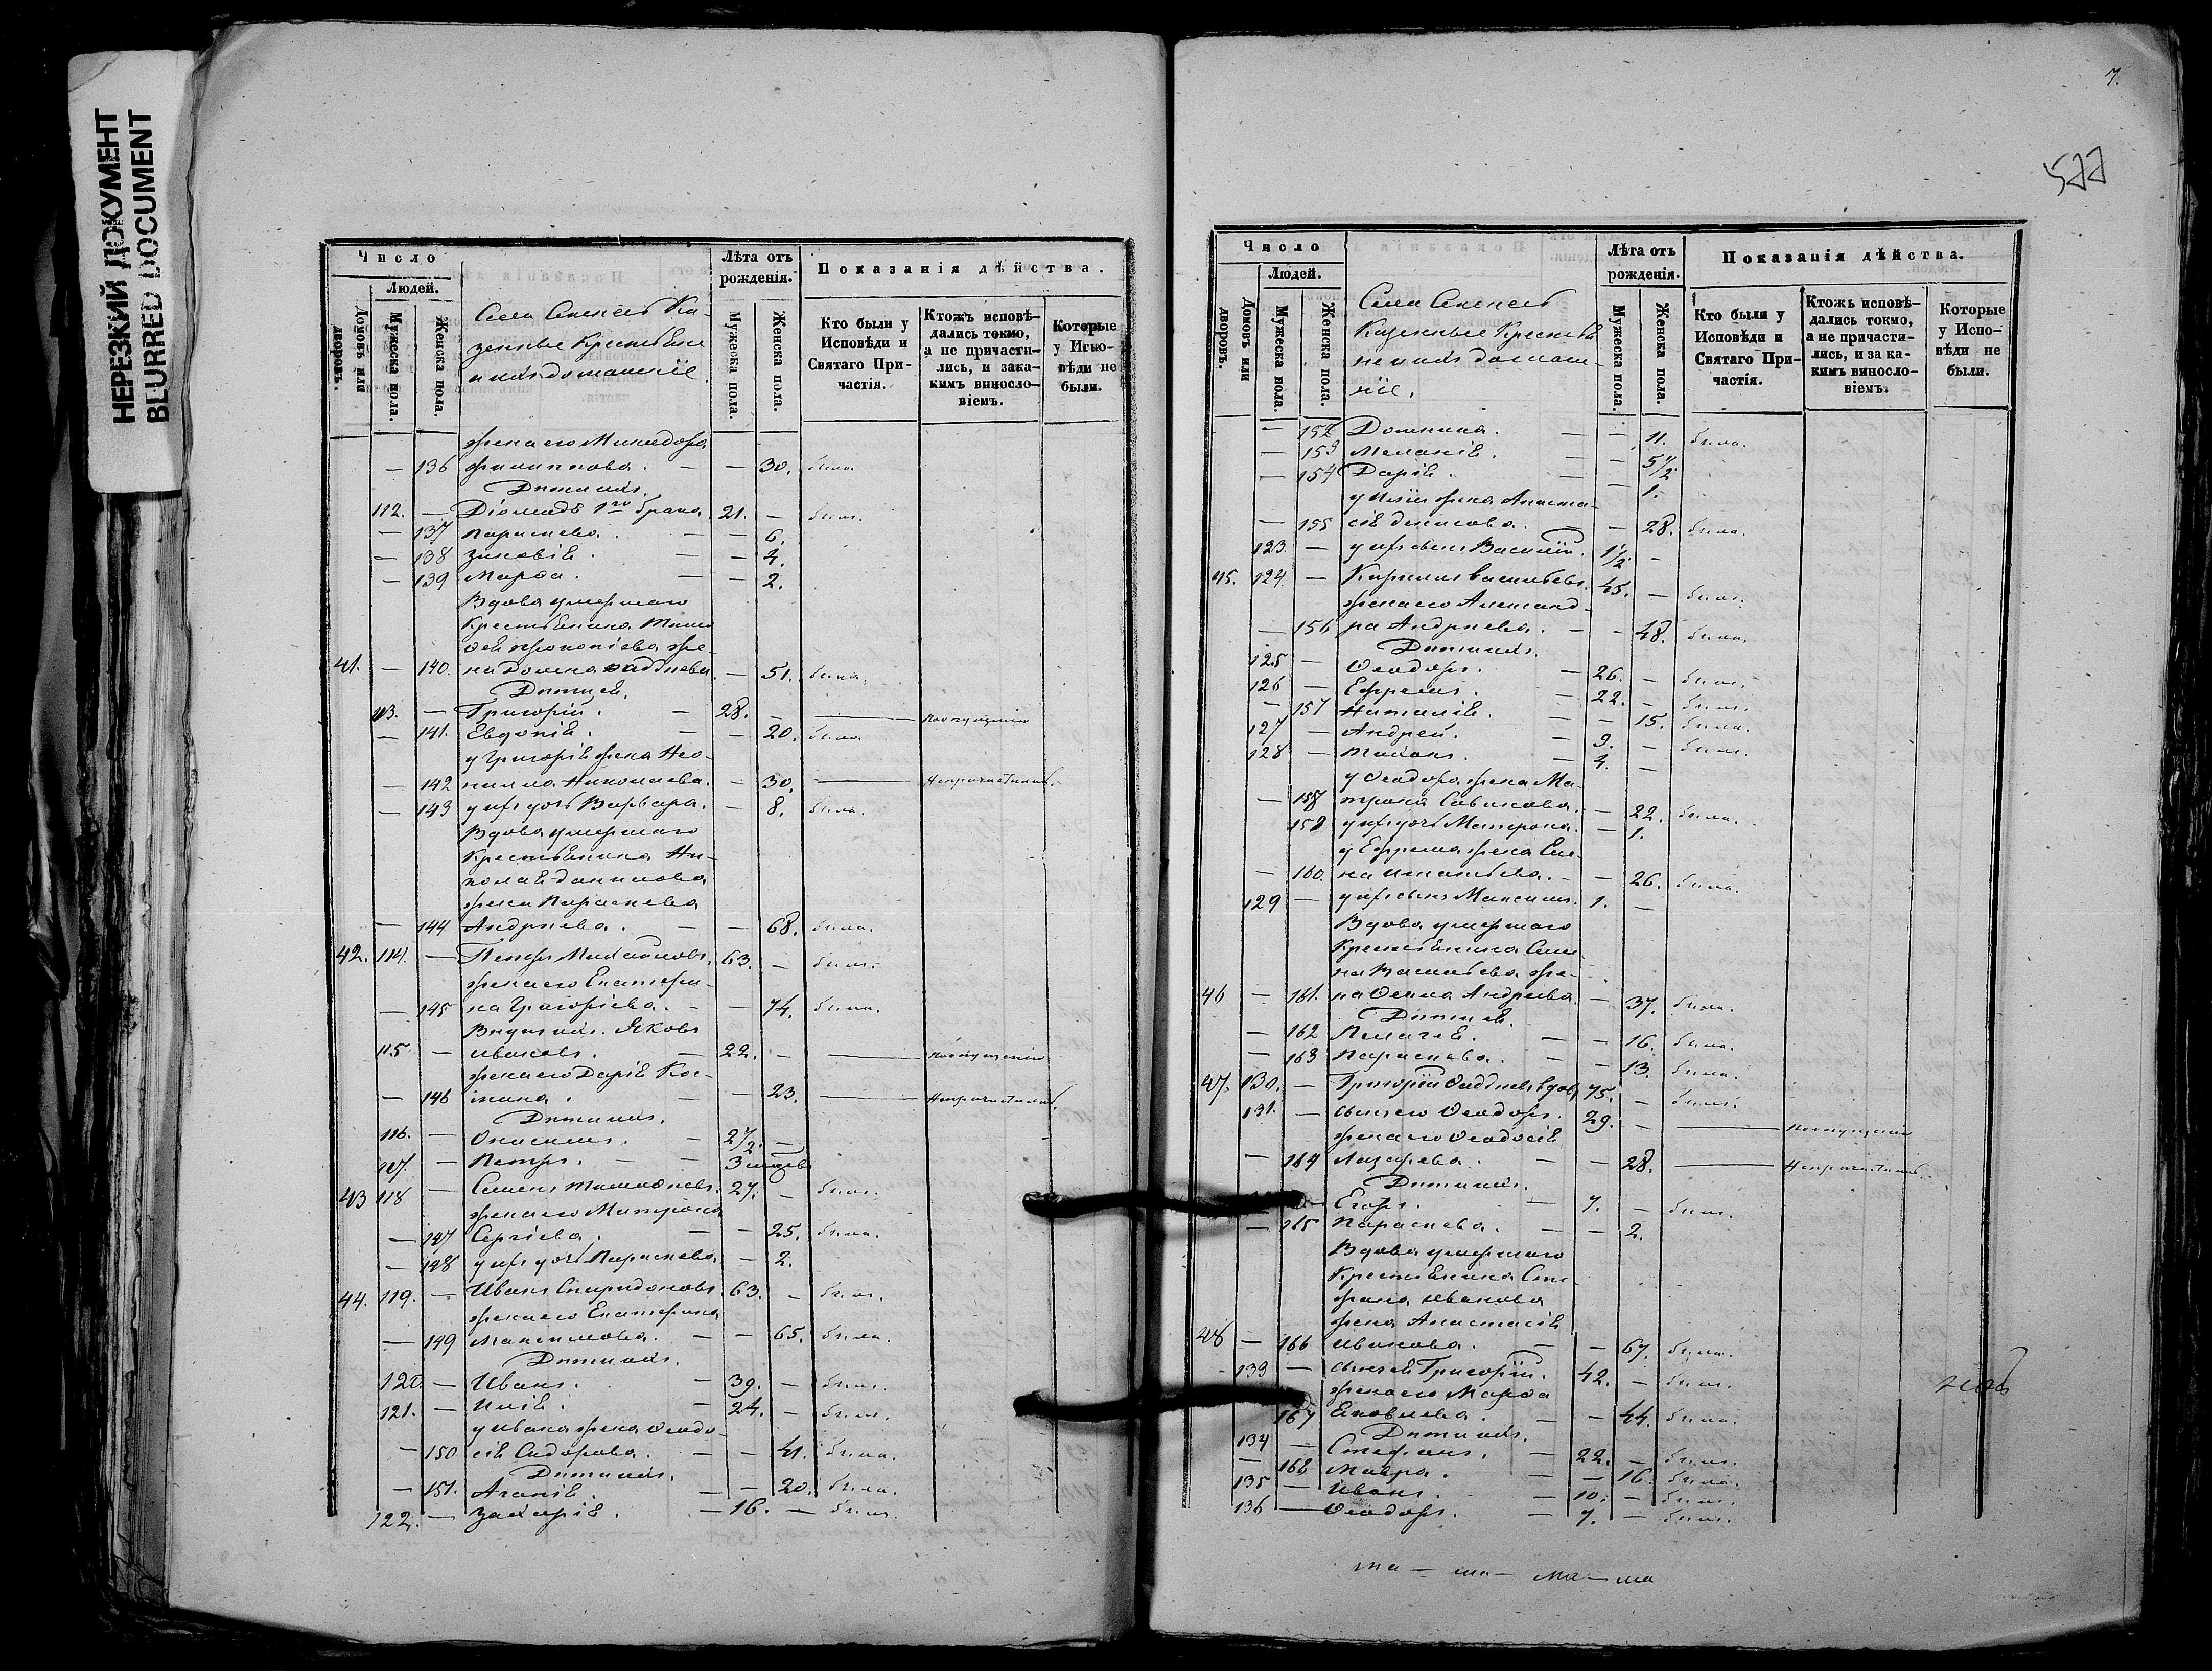 НЕРЕЗКИЙ ДОКУМЕНТ
BLURRED DOCUMENT
Число
Людей.
Домовъ или дворовъ.
Мужеска пола.
Женска пола.
Села Ка-
зенные Крестьяне
и ихъ домашніе
Лѣта отъ рожденія.
Мужеска пола.
Женска пола.
Показанія дѣйства.
Кто были у Исповѣди и Святаго При-частія.
Ктожъ исповѣ-дались токмо, а не причасти-лись, и зака-кимъ винословіемъ.
Которые у Испо-вѣди не были.
жена его Миледора
— 136 Филиппова. — — 30. была.
Дѣти ихъ.
112. — Діомидъ 1го брака 21. — былъ.
— 137 Параскева. — — 6.
— 138 Зиновія. — — 4.
— 139 Марѳа. — — 2.
Вдова умершаго
Крестьянина Тимо
ѳея Прокопіева же-
41. — 140. на Домна Ѳаддѣева. — 51. была.
Дѣти ея.
113. — Григорій. — 28. — — по опущенію
— 141. Евдокія. — — 20. была.
у Григорія жена Нео-
— 142 нилла Николаева. — 30. — Непричастилась.
— 143 у нихъ дочь Варвара. — 8. была.
Вдова умершаго
Крестьянина Ни-
колая Данилова
жена Параскева
— 144 Андреева. — — 68. была.
42. 114. — Петръ Михайловъ. 63. — былъ.
жена его Екатери-
— 145 на Григорьева. — — 74. была.
Внукъ ихъ Яковъ
115. — Ивановъ. — 22. — — по опущенію
жена его Дарія Кос-
— 146 мина. — — 23. — Непричастилась.
Дѣти ихъ.
116. — Онисимъ. — 2 1/2. —
117. — Петръ. — — 3 мѣсяцевъ
43 118 — Семенъ Тимоѳеевъ. 27. — былъ.
жена его Матрона
— 147 Сергіева. — — 25. была.
— 148 у нихъ дочь Параскева — 2.
44. 119. — Иванъ Спиридоновъ 63. — былъ.
жена его Екатерина
— 149 Максимова. — — 65. была.
Дѣти ихъ.
120. — Иванъ. — 39. — былъ.
121. — Илія. — 24. — былъ.
у Ивана жена Ѳеодо-
— 150 сія Сидорова. — — 41. была.
Дѣти ихъ.
— 151. Агапія. — — 20. была.
122. — Захарія. — 16. — былъ.
7.
577
Число
Людей.
Домовъ или дворовъ.
Мужеска пола.
Женска пола.
Села
Казенные Крестья
не и ихъ домаш-
ніе.
Лѣта отъ рожденія.
Мужеска пола.
Женска пола.
Показанія дѣйства.
Кто были у Исповѣди и Святаго При-частія.
Ктожъ исповѣ-дались токмо, а не причасти-лись, и за ка-кимъ винословіемъ.
Которые у Испо-вѣди не были.
— 152 Домника. — — 11. была.
— 153 Меланія. — — 5 1/2
— 154 Дарія. — — 1.
у Иліи жена Анаста-
— 155 сія Денисова. — — 28. была.
123. — у нихъ сынъ Василій. 1 1/2 —
45. 124. — Кириллъ Васильевъ. 45. — былъ.
жена его Александ-
— 156 ра Андреева. — — 48. была.
Дѣти ихъ.
125 — Ѳеодоръ. — 26. — былъ.
126 — Ефремъ. — 22. — былъ.
— 157 Наталія. — — 15. была.
127 — Андрей. — 9. — былъ.
128 — Тихонъ. — 4. —
у Ѳеодора жена Ма-
— 158 трона Савинова. — 22. была.
159 у нихъ дочь Матрона. — 1.
у Ефрема жена Еле-
— 160. на Игнатьева. — — 26. была.
129 — у нихъ сынъ Максимъ. 1. —
Вдова умершаго
Крестьянина Семе
на Васильева же-
46 — 161. на Ѳекла Андреева. — 37. была.
Дѣти ея.
— 162 Пелагея. — — 16. была.
— 163 Параскева. — — 13. была.
47. 130. — Григорій Ѳаддѣевъ вдовъ 75. — былъ.
131. — сынъ его Ѳеодоръ. 29. — — по опущенію
жена его Ѳеодосія
— 164 Лазарева. — — 28. — Непричастилась.
Дѣти ихъ.
— Егоръ. — 7. — былъ.
— 165 Параскева. — — 2.
Вдова умершаго
Крестьянина Сте-
фана Иванова
жена Анастасія
48 — 166 Иванова. — — 67. была.
133 — сынъ ея Григорій. 42. — былъ.
жена его Марѳа
167 Яковлева. — — 44. была.
Дѣти ихъ.
134 — Стефанъ. — 22. — былъ.
— 168 Мавра. — — 16. была.
135 — Иванъ. — 10. — былъ.
136 — Ѳеодоръ. — 7. — былъ.
та — та — ма — ма